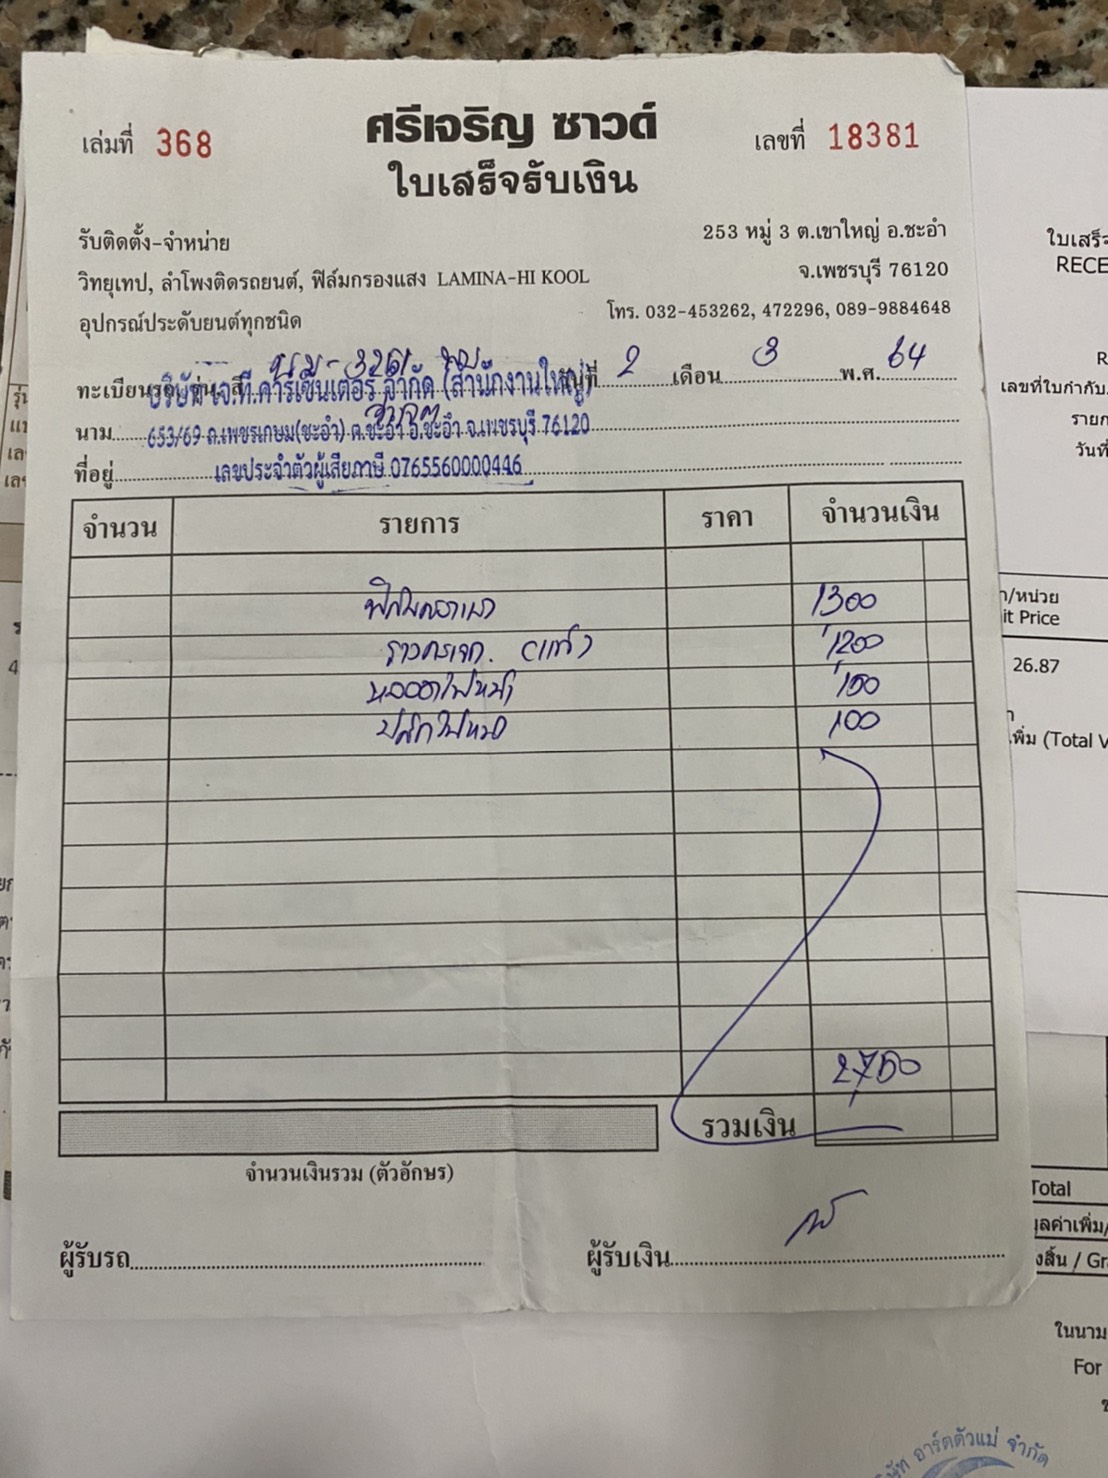 ศรีเจริญ ซาวด์
เล่มที่ 368
เลขที่ 18381
ใบเสร็จรับเงิน
รับติดตั้ง-จำหน่าย
253 หมู่ 3 ต.เขาใหญ่ อ.ชะอำ
วิทยุเทป, ลำโพงติดรถยนต์, ฟิล์มกรองแสง LAMINA-HI KOOL
จ.เพชรบุรี 76120
อุปกรณ์ประดับยนต์ทุกชนิด
โทร. 032-453262, 472296, 089-9884648
ทะเบียน บริษัท เจ.ที.คาร์เซ็นเตอร์ จำกัด (สำนักงานใหญ่) วันที่ 2 เดือน 3 พ.ศ. 64
นาม 653/69 ถ.เพชรเกษม(ชะอำ) ต.ชะอำ อ.ชะอำ จ.เพชรบุรี 76120
ที่อยู่ เลขประจำตัวผู้เสียภาษี 0765560000446
จำนวน รายการ ราคา จำนวนเงิน
1300
1200
หลอดไฟหน้า 150
ปลั๊กไฟหน้า 100
2750
รวมเงิน
จำนวนเงินรวม (ตัวอักษร)
ผู้รับรถ
ผู้รับเงิน
RECE
เลขที่ใบกำกับ
/หน่วย
it Price
26.87
เพิ่ม (Total V
Total
มูลค่าเพิ่ม/
งสิ้น / Gr
ในนาม
For
อาร์ตตัวแม่ จำกัด